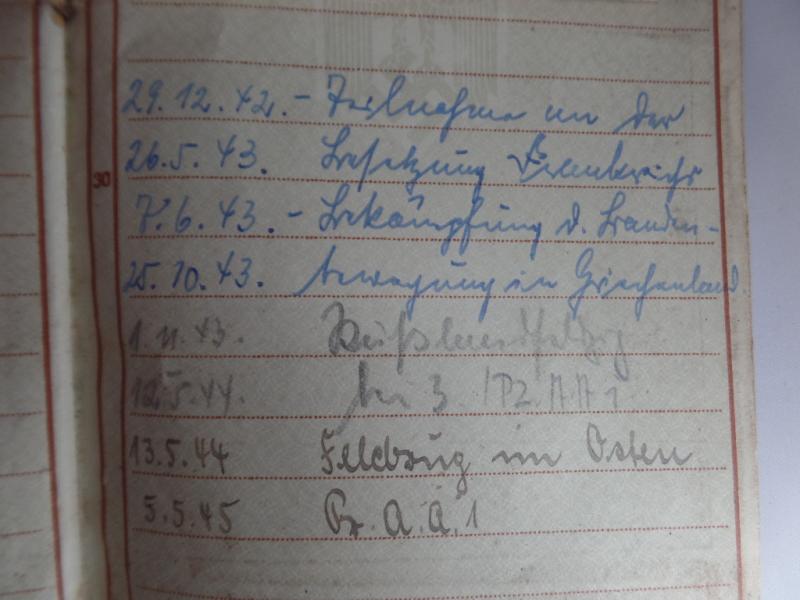 29.12.42. - Teilnahme an der
30
26.5.43. Besetzung Frankreichs
7.6.43. - Bekämpfung d. Banden-
25.10.43. bewegung in Griechenland.
1.11.43. Rußlandfeldzug
12.5.44. bei 3./Pz.A.A.1
13.5.44 Feldzug im Osten
5.5.45 Pz.A.A.1